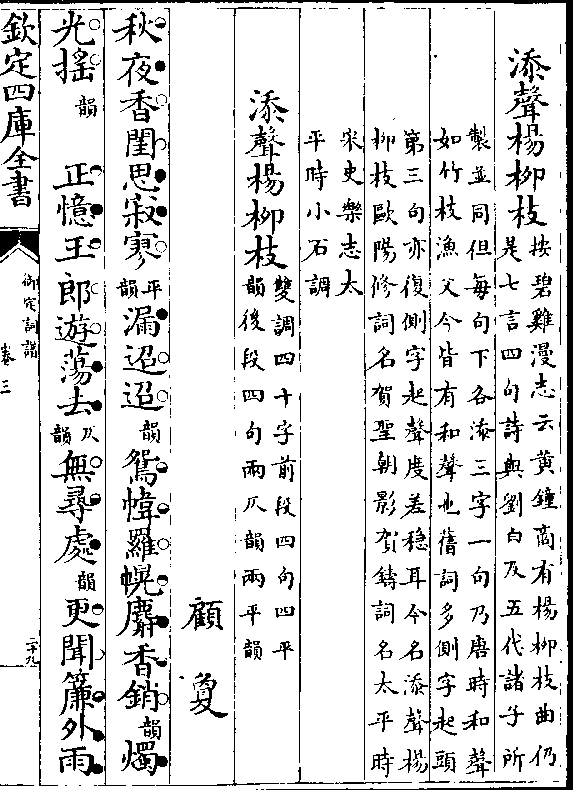 添聲楊柳枝
按碧雞漫志云黃鐘商有楊柳枝曲仍
是七言四句詩與劉白及五代諸子所
製並同但每句下各添三字一句乃唐時和聲
如竹枝漁父今皆有和聲也舊詞多側字起頭
第三句亦復側字起聲度差穩耳今名添聲楊
柳枝歐陽修詞名賀聖朝影賀鑄詞名太平時
宋史樂志太
平時小石調
添聲楊柳枝
雙調四十字前段四句四平
韻後段四句兩仄韻兩平韻
顧夐
秋夜香閨思寂寥平韻漏迢迢韻鴛幃羅幌麝香銷韻燭
光搖韻正憶王郎遊蕩去仄韻無尋處韻更聞簾外雨
欽定四庫全書
御定詞譜
卷三
二十九